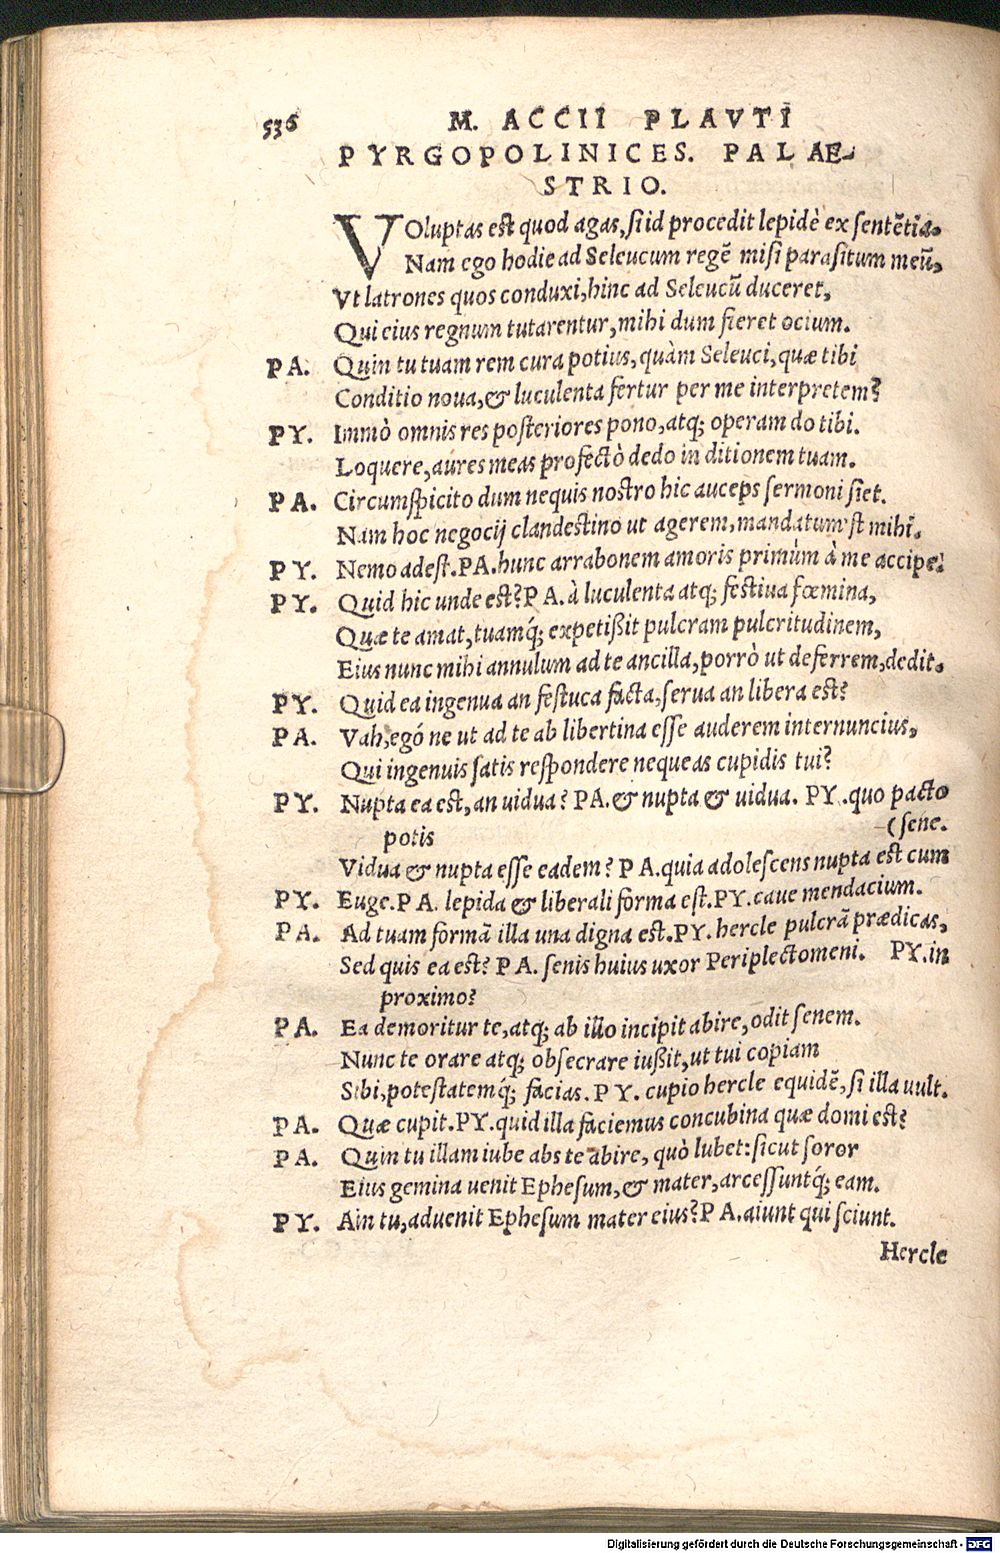 536 M. ACCII PLAVTI
PYRGOPOLINICES. PALAE-
STRIO.
VOluptas est quod agas, si id procedit lepidè ex sentẽtia.
Nam ego hodie ad Seleucum regẽ misi parasitum meũ,
Vt latrones quos conduxi, hinc ad Seleucũ duceret,
Qui eius regnum tutarentur, mihi dum fieret ocium.
PA. Quin tu tuam rem cura potius, quàm Seleuci, quæ tibi
Conditio noua, & luculenta fertur per me interpretem?
PY. Immò omnis res posteriores pono, atq; operam do tibi.
Loquere, aures meas profectò dedo in ditionem tuam.
PA. Circumspicito dum nequis nostro hic auceps sermoni siet.
Nam hoc negocij clandestino ut agerem, mandatum'st mihi.
PY. Nemo adest. PA. hunc arrabonem amoris primùm à me accipe.
PY. Quid hic unde est? PA. à luculenta atq; festiua fœmina,
Quæ te amat, tuamq́; expetißit pulcram pulcritudinem,
Eius nunc mihi annulum ad te ancilla, porrò ut deferrem, dedit.
PY. Quid ea ingenua an festuca facta, serua an libera est?
PA. Vah, egó ne ut ad te ab libertina esse auderem internuncius,
Qui ingenuis satis respondere nequeas cupidis tui?
PY. Nupta ea est, an uidua? PA. & nupta & uidua. PY. quo pacto
potis (sene.
Vidua & nupta esse eadem? PA. quia adolescens nupta est cum
PY. Euge. PA. lepida & liberali forma est. PY. caue mendacium.
PA. Ad tuam formã illa una digna est. PY. hercle pulcrã prædicas,
Sed quis ea est? PA. senis huius uxor Periplectomeni. PY. in
proximo?
PA. Ea demoritur te, atq; ab illo incipit abire, odit senem.
Nunc te orare atq; obsecrare iußit, ut tui copiam
Sibi, potestatemq́; facias. PY. cupio hercle equidẽ, si illa uult.
PA. Quæ cupit. PY. quid illa faciemus concubina quæ domi est?
PA. Quin tu illam iube abs te abire, quò lubet: sicut soror
Eius gemina uenit Ephesum, & mater, arcessuntq́; eam.
PY. Ain tu, aduenit Ephesum mater eius? PA. aiunt qui sciunt.
Hercle
Digitalisierung gefördert durch die Deutsche Forschungsgemeinschaft - DFG